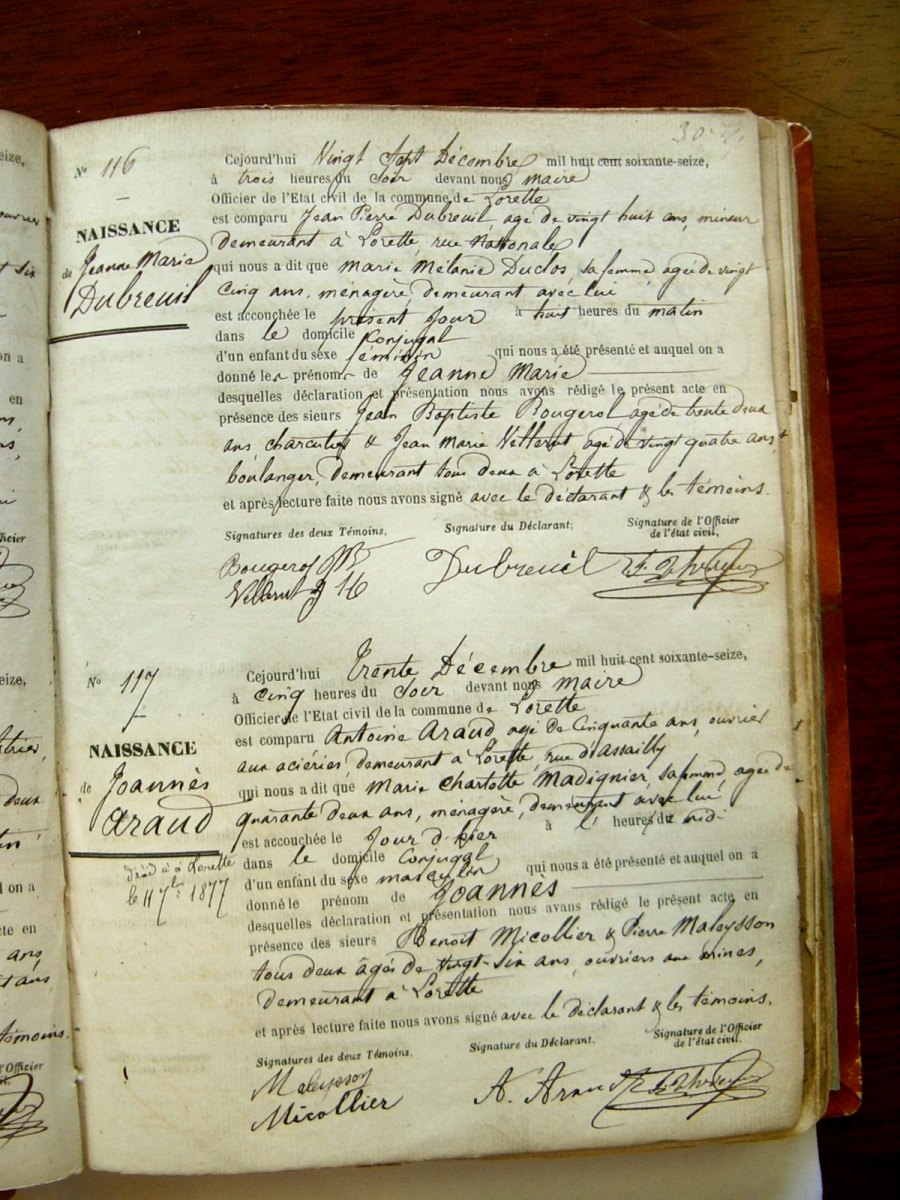 30
Nº 116
NAISSANCE
de Jeanne Marie
Dubreuil
Cejourd'hui Vingt Sept Décembre mil huit cent soixante-seize,
à trois heures du Soir devant nous maire
Officier de l'Etat civil de la commune de Lorette
est comparu Jean Pierre Dubreuil, agé de vingt huit ans, mineur
demeurant à Lorette, rue Nationale
qui nous a dit que Marie Mélanie Duclos, sa femme, agée de vingt
cinq ans, ménagère, demeurant avec lui
est accouchée le présent Jour à huit heures du matin
dans le domicile conjugal
d'un enfant du sexe féminin qui nous a été présenté et auquel on a
donné les prénoms de Jeanne Marie
desquelles déclaration et présentation nous avons rédigé le présent acte en
présence des sieurs Jean Baptiste Bougerol agé de trente deux
ans charcutier & Jean Marie Vellerut agé de vingt quatre ans,
boulanger, demeurant tous deux à Lorette
et après lecture faite nous avons signé avec le déclarant & les témoins.
Signatures des deux Témoins,
Signature du Déclarant,
Signature de l'Officier
de l'état civil,
Bougerol JB
Vellerut J M
Dubreuil
Nº 117
NAISSANCE
de Joannès
Araud
décédé à Lorette
le 11 7bre 1877
Cejourd'hui Trente Décembre mil huit cent soixante-seize,
à Cinq heures du Soir devant nous maire
Officier de l'Etat civil de la commune de Lorette
est comparu Antoine Araud, agé de Cinquante ans, ouvrier
aux aciéries, demeurant à Lorette, rue d'assailly
qui nous a dit que Marie Charlotte Madignier, sa femme, agée de
quarante deux ans, ménagère, demeurant avec lui
est accouchée le Jour d'hier à heures du midi
dans le domicile Conjugal
d'un enfant du sexe masculin qui nous a été présenté et auquel on a
donné le prénom de Joannès
desquelles déclaration et présentation nous avons rédigé le présent acte en
présence des sieurs Benoît Micollier & Pierre Maleysson
tous deux âgés de vingt-six ans, ouvriers aux mines,
demeurant à Lorette
et après lecture faite nous avons signé avec le déclarant & les témoins.
Signatures des deux Témoins,
Signature du Déclarant.
Signature de l'Officier
de l'état civil,
Maleysson
Micollier
A. Araud